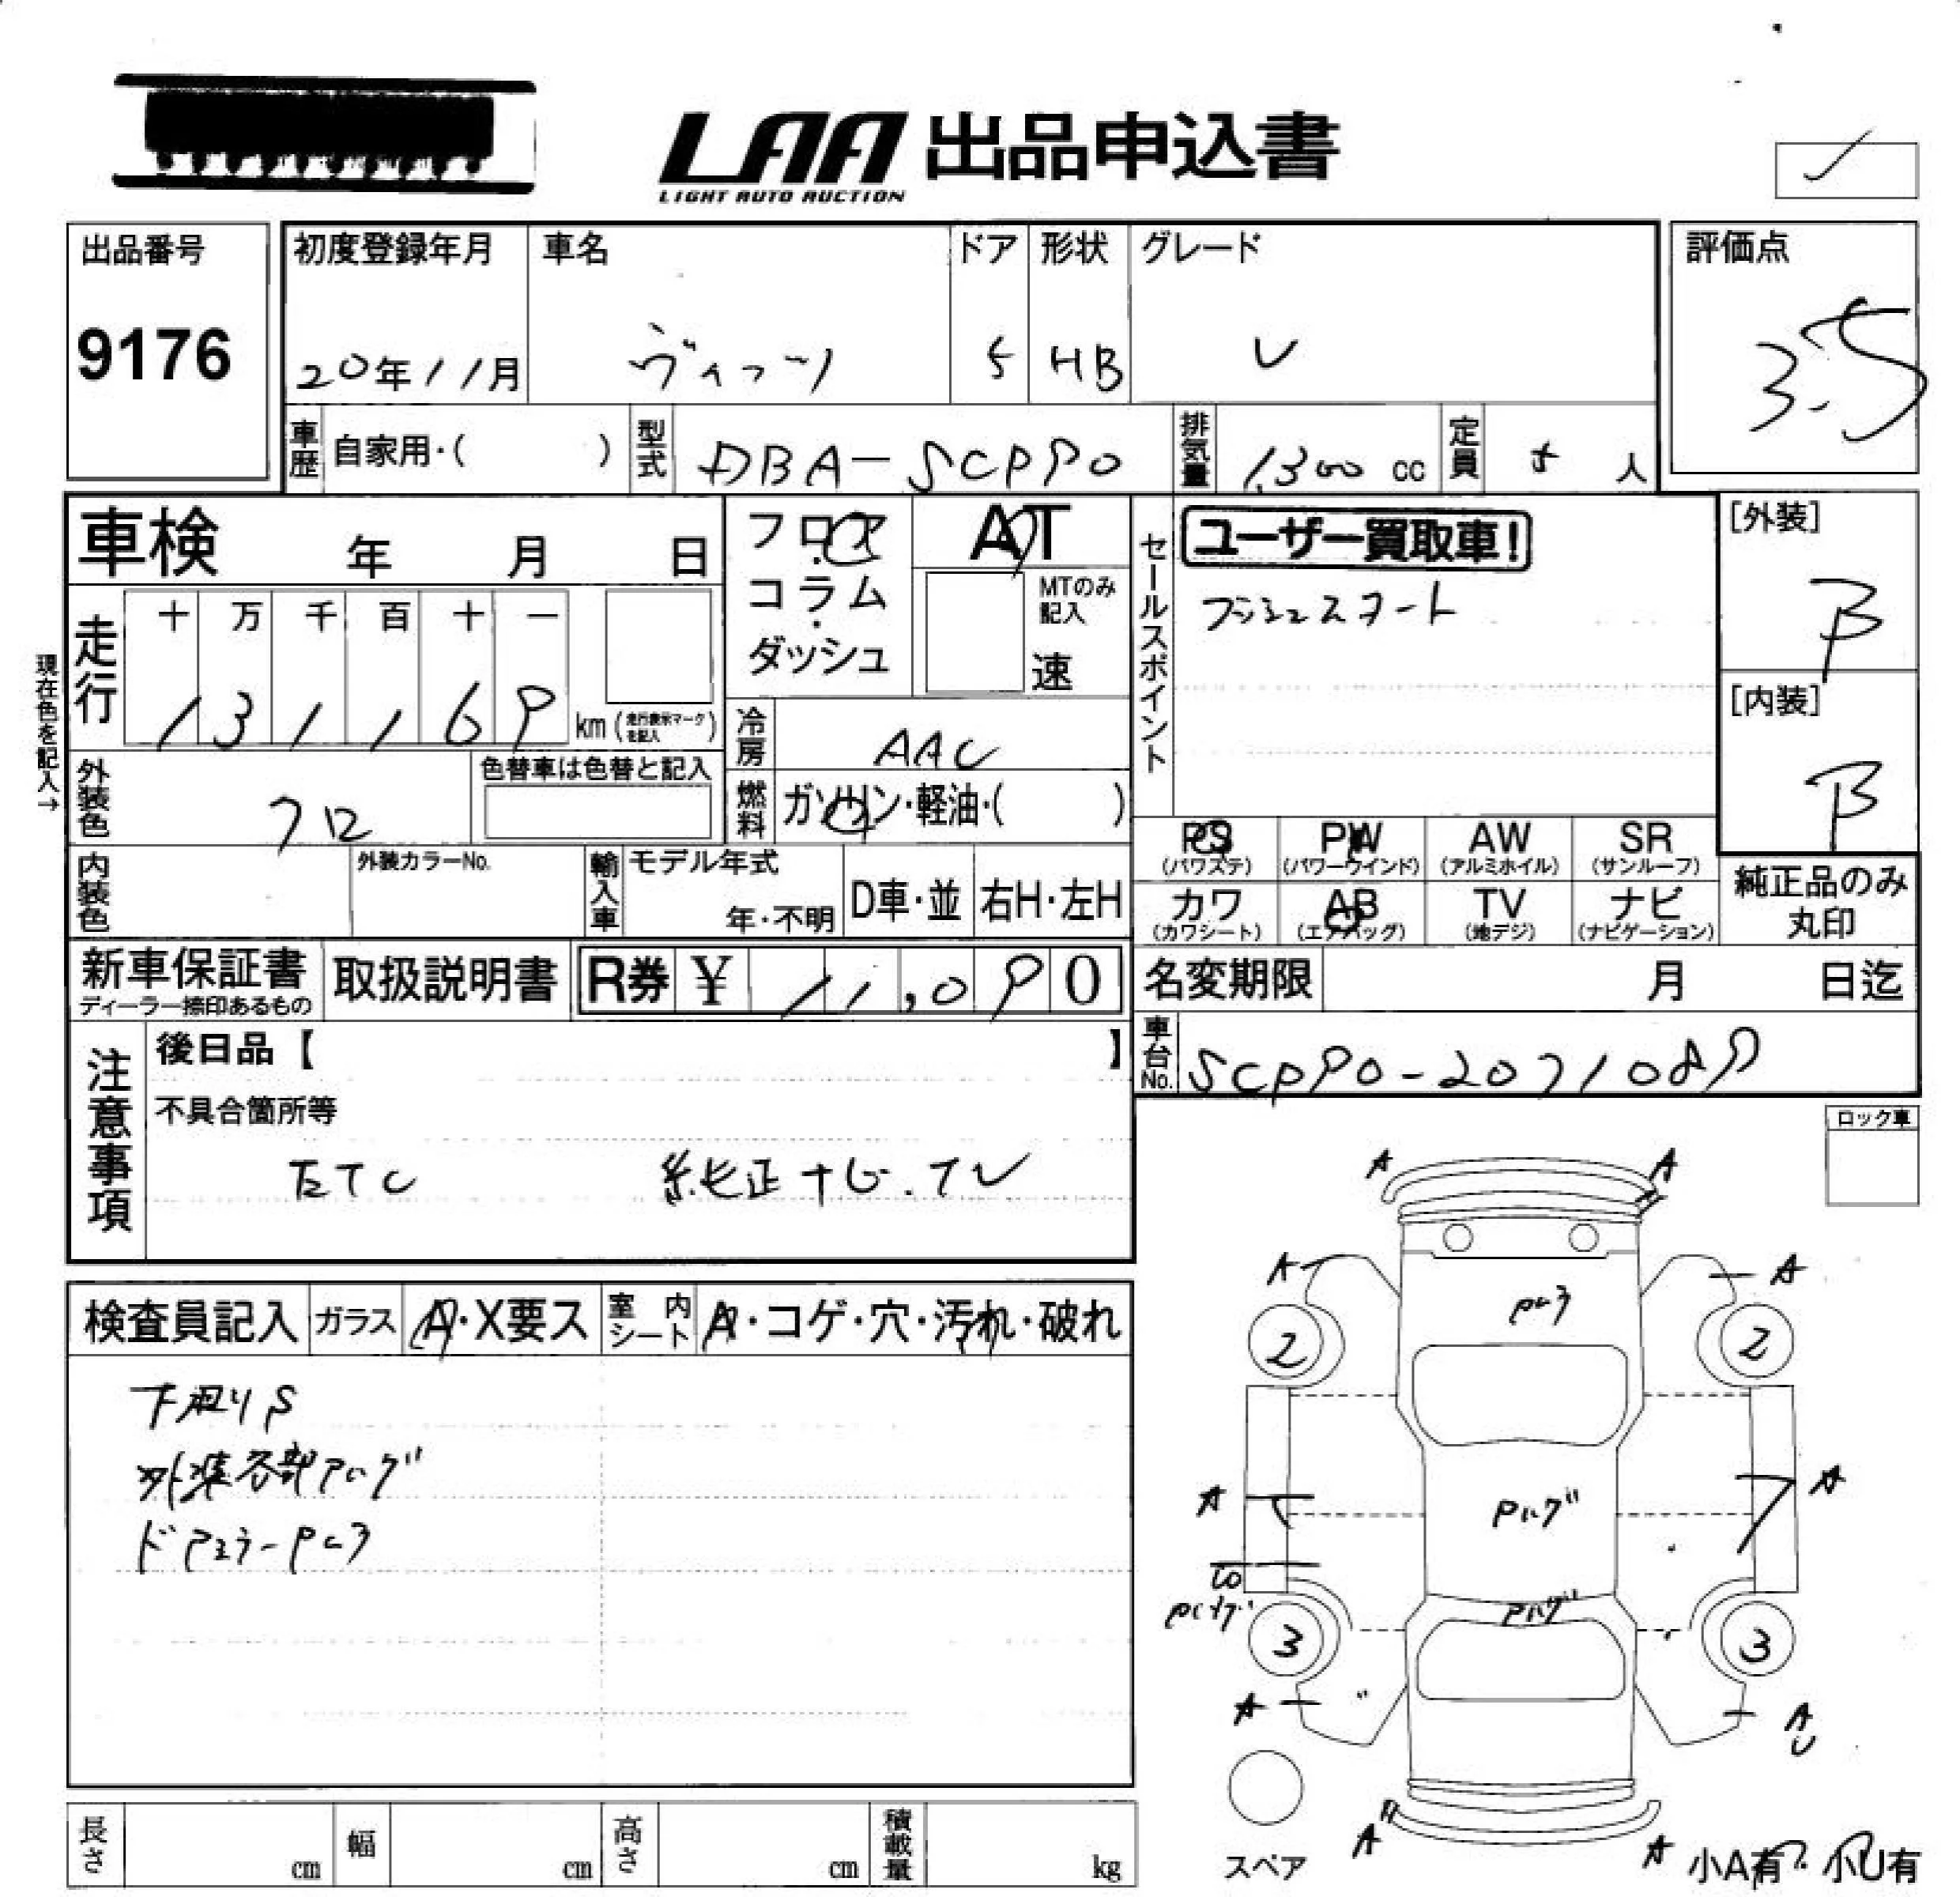 LAA 出品申込書
LIGHT AUTO AUCTION
出品番号
9176
初度登録年月
20年11月
車名
ヴィッツ
ドア
5
形状
HB
グレード
U
評価点
3.5
車歴
自家用・( )
型式
DBA-SCP90
排気量
1,300 cc
定員
5 人
車検 年 月 日
フロア・
コラム・
ダッシュ
AT
MTのみ記入
速
セールスポイント
ユーザー買取車!
プッシュスタート
[外装]
B
[内装]
B
現在色を記入→
走行
十 万 千 百 十 一
1 3 1 1 6 9
km (走行表示マークを記入)
冷房
AAC
外装色
クロ
色替車は色替と記入
燃料
ガソリン・軽油・( )
PS
(パワステ)
PW
(パワーウインド)
AW
(アルミホイル)
SR
(サンルーフ)
カワ
(カワシート)
AB
(エアバッグ)
TV
(地デジ)
ナビ
(ナビゲーション)
純正品のみ
丸印
内装色
外装カラーNo.
輸入車
モデル年式
年・不明
D車・並
右H・左H
新車保証書
ディーラー捺印あるもの
取扱説明書
R券 ¥ 11,090
名変期限 月 日迄
車台No.
SCP90-2071089
注意事項
後日品【 】
不具合箇所等
ETC 純正ナビ.TV
ロック車
検査員記入
ガラス
A・X要ス
室内シート
A・コゲ・穴・汚れ・破れ
下廻りS
外装各部アハゲ
ドアミラーPム3
A
A
A
A
2
2
A
A
Pハゲ
Pハゲ
3
3
A
A
U
A
A
スペア
小A有・小U有
長さ cm
幅 cm
高さ cm
積載量 kg